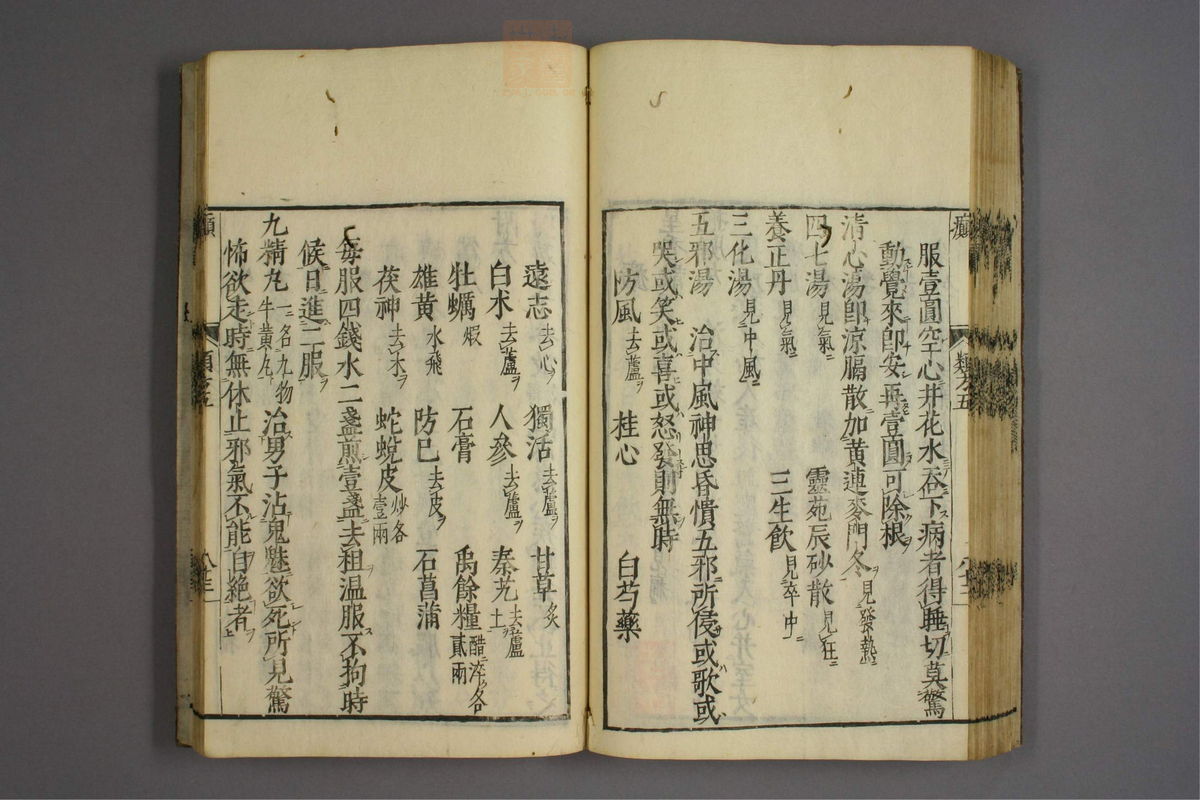 服壹圓空心井花水吞下病者得睡切莫驚
動覺來卽安再壹圓可除根
清心湯卽涼膈散加黃連麥門冬見發熱
四七湯見氣 靈苑辰砂散見狂
養正丹見氣 三生飲見卒中
三化湯見中風
五邪湯 治中風神思昏憒五邪所侵或歌或
哭或笑或喜或怒發則無時
防風去蘆 桂心 白芍藥
遠志去心 獨活去蘆 甘草炙
白朮去蘆 人參去蘆 秦艽去蘆土
牡蠣煅 石膏 禹餘糧醋淬各貳兩
雄黃水飛 防巳去皮 石菖蒲
茯神去木 蛇蛻皮炒各壹兩
每服四錢水二盞煎壹盞去柤溫服不拘時
候日進二服
九精丸一名九物牛黃丸 治男子沾鬼魅欲死所見驚
怖欲走時無休止邪氣不能自絕者